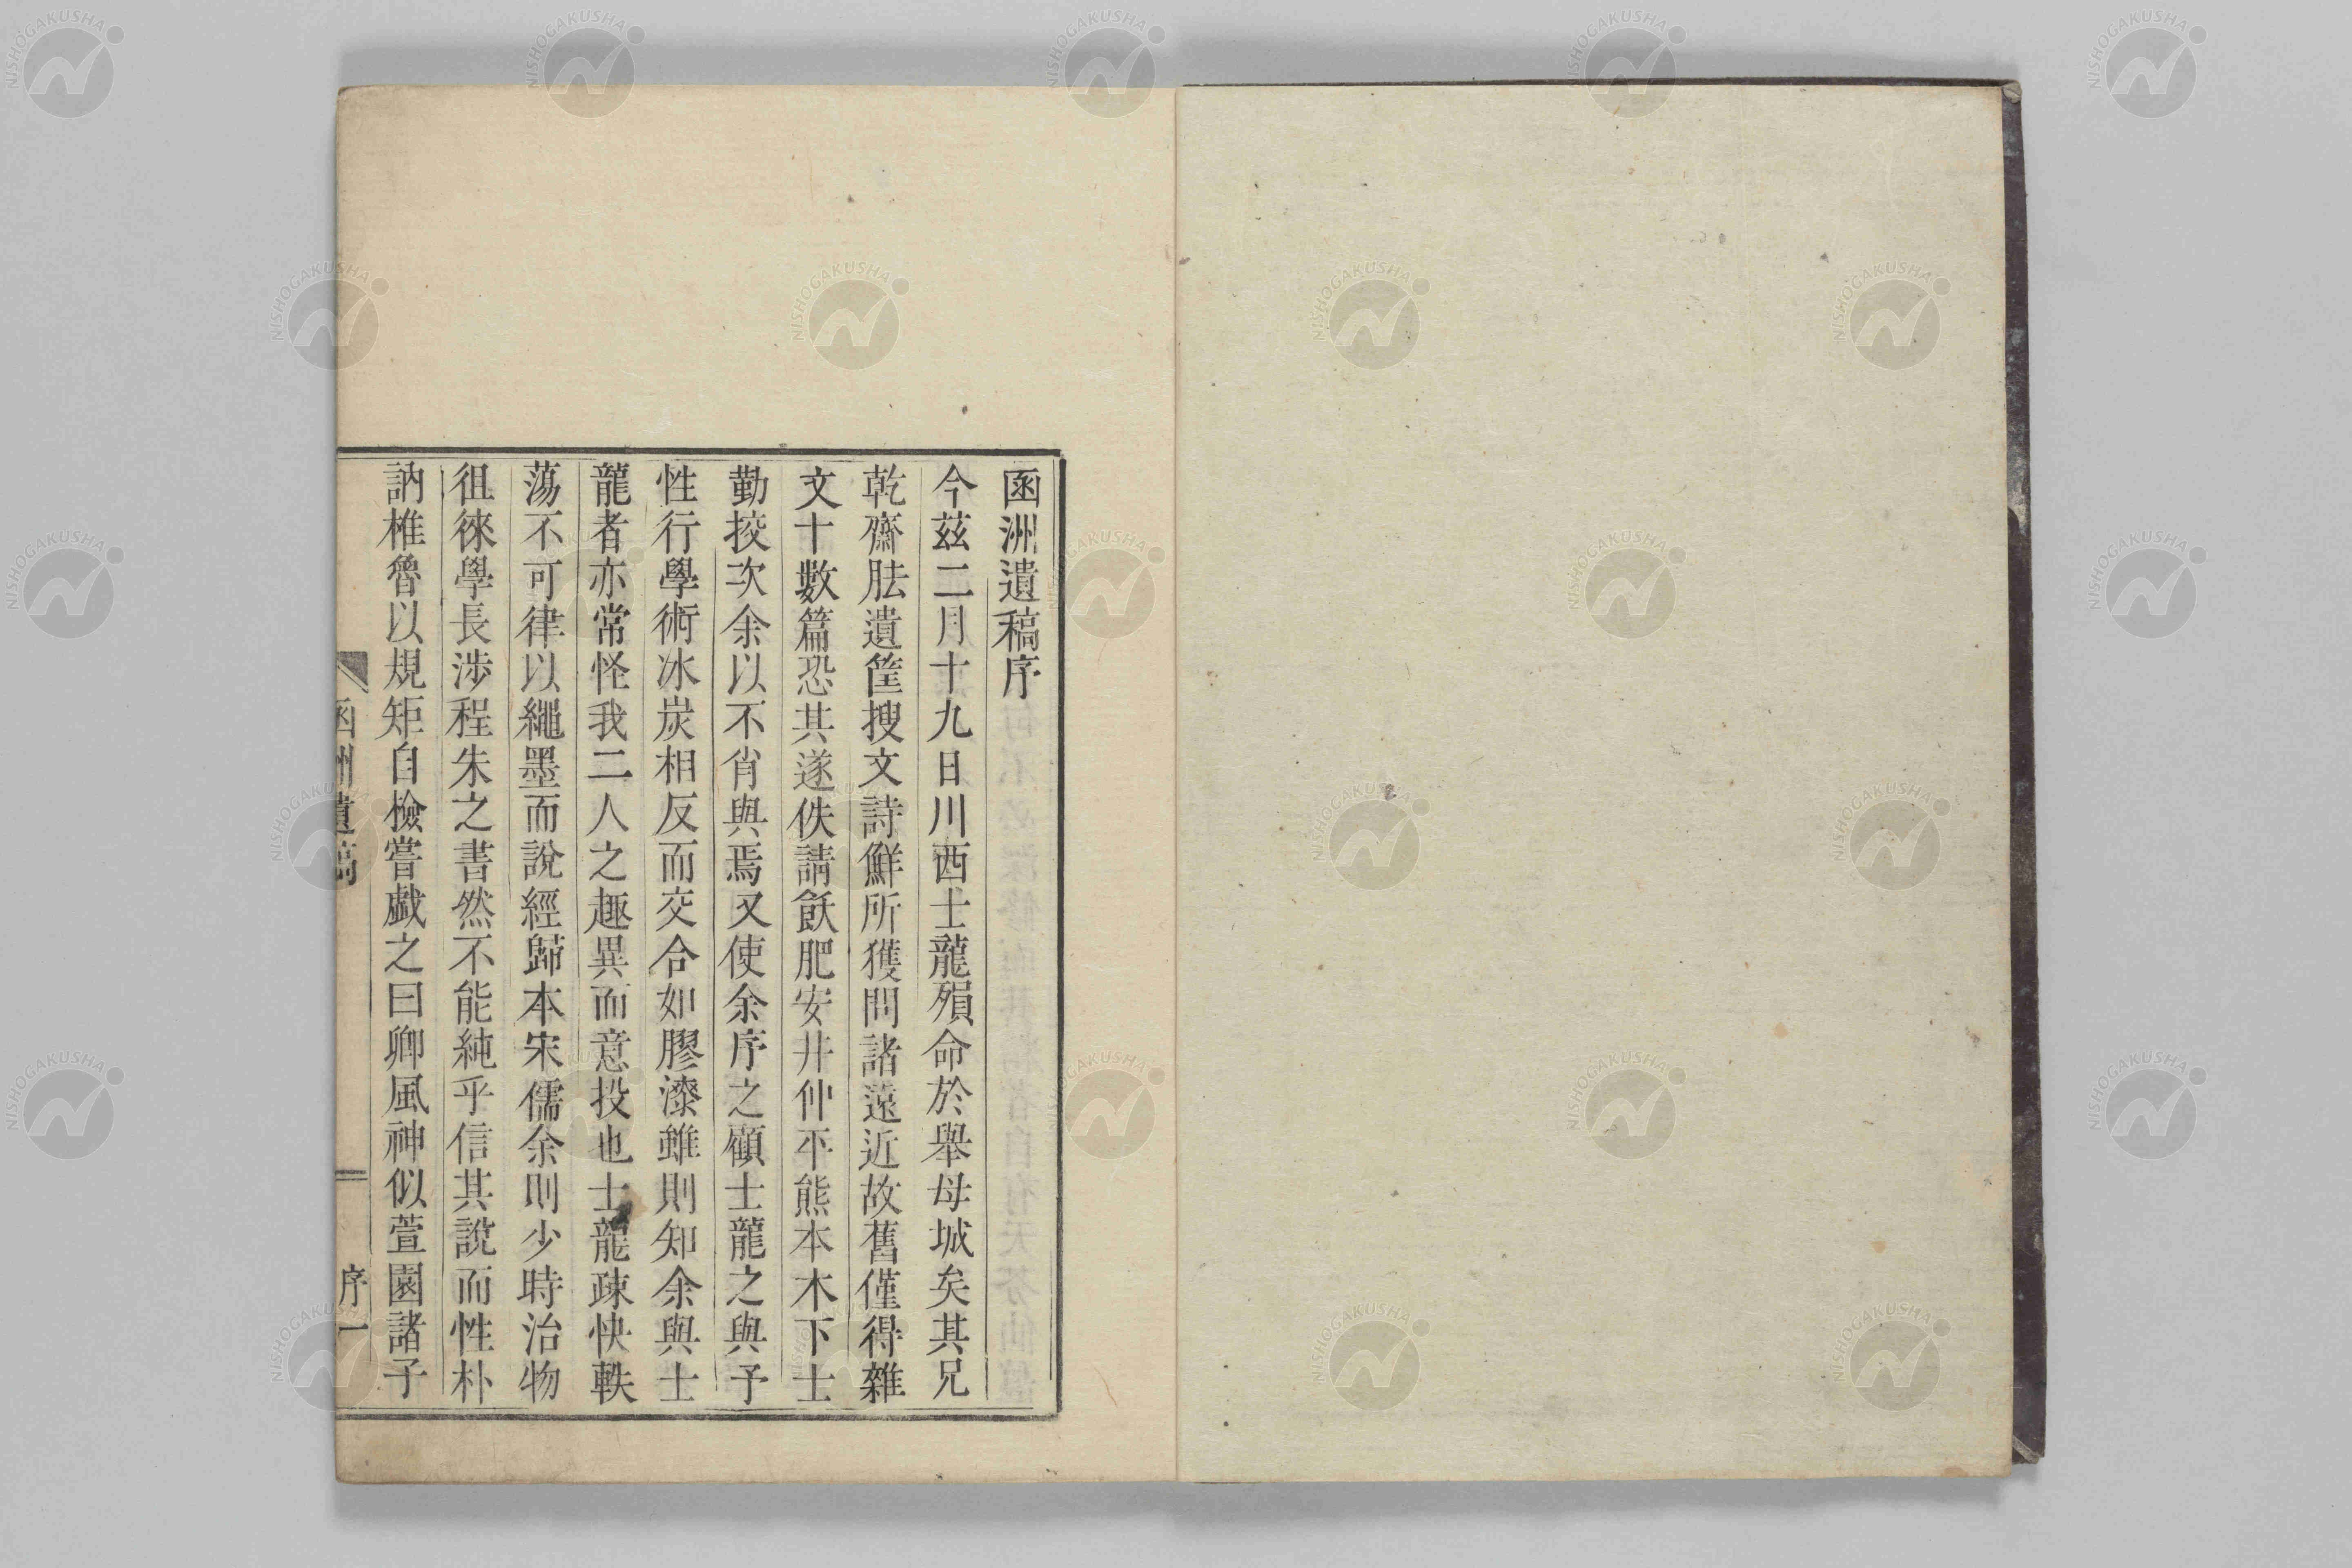 函洲遺稿序
今茲二月十九日川西士龍殞命於舉母城矣其兄
乾齋胠遺筐搜文詩鮮所獲問諸遠近故舊僅得雜
文十數篇恐其遂佚請飫肥安井仲平熊本木下士
勤挍次余以不肖與焉又使余序之顧士龍之與予
性行學術冰炭相反而交合如膠漆雖則知余與士
龍者亦常怪我二人之趣異而意投也士龍疎快軼
蕩不可律以繩墨而說經歸本宋儒余則少時治物
徂徠學長涉程朱之書然不能純乎信其說而性朴
訥椎魯以規矩自檢嘗戯之曰卿風神似萱園諸子
函洲遺稿
序一
NISHOGAKUSHA